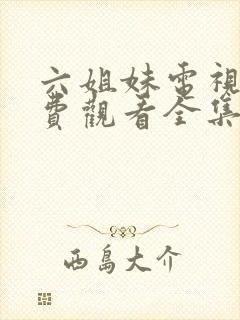 六姐妹電視
費觀看全集
西島大介